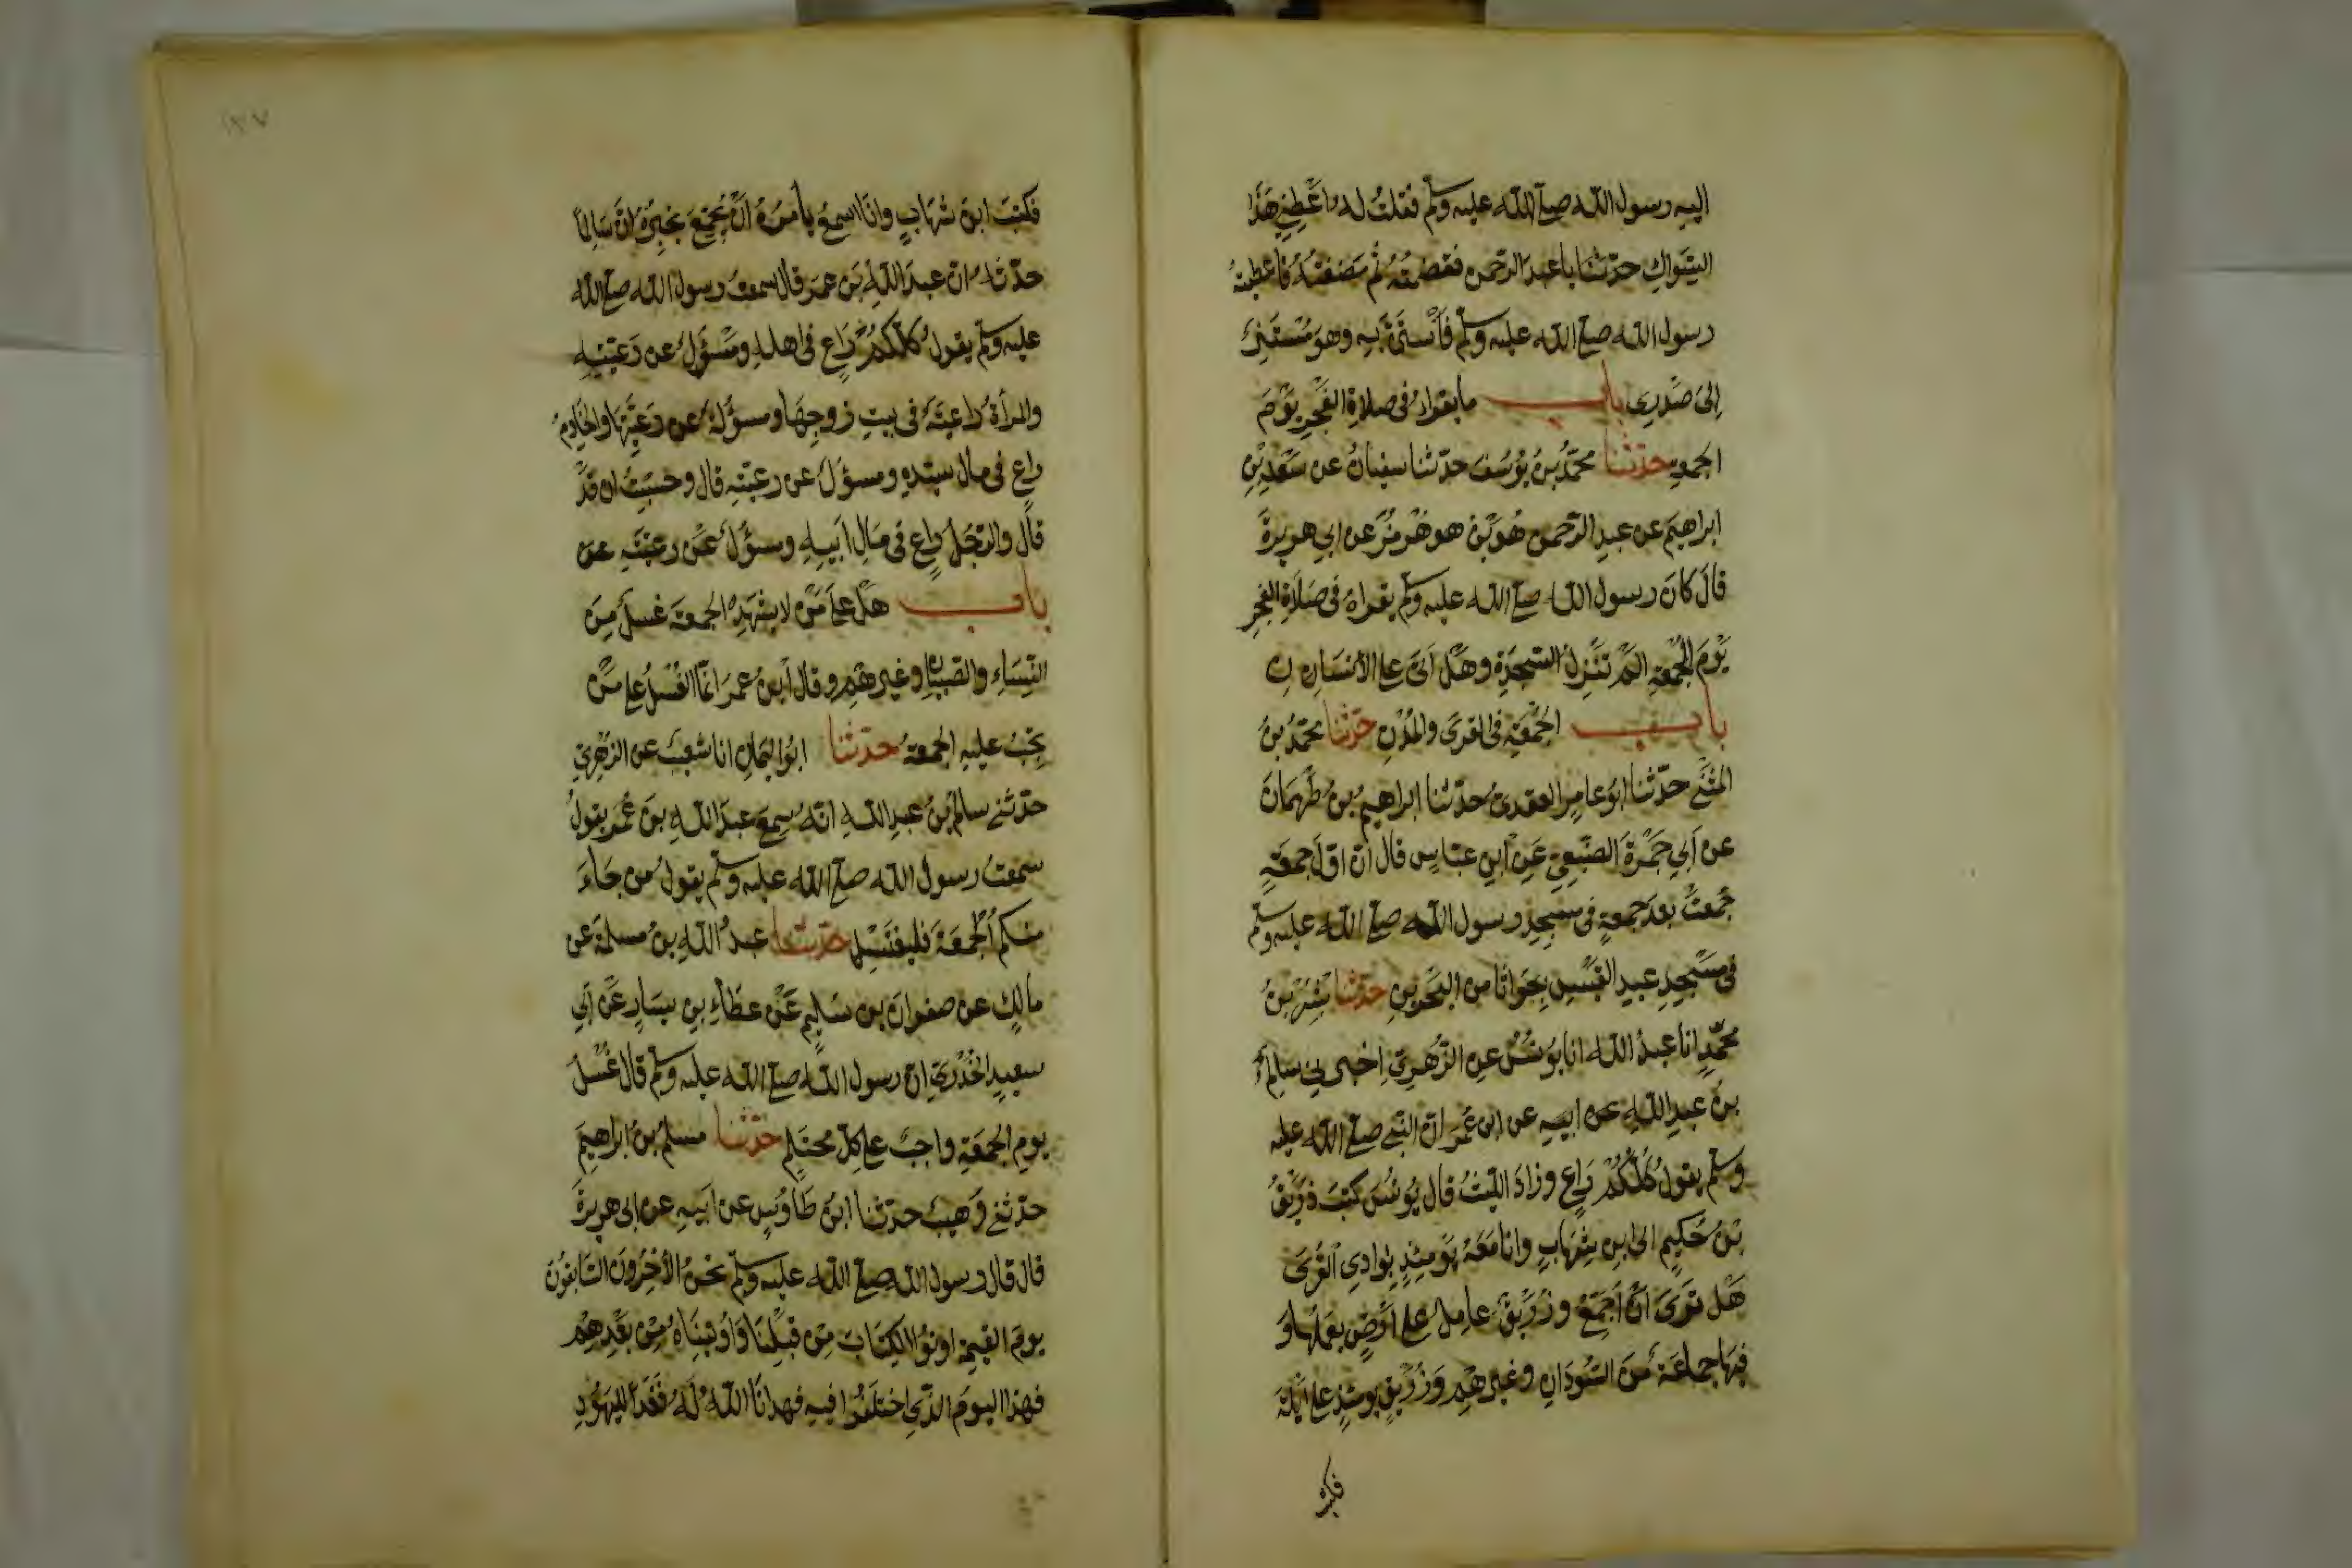 اليه رسول الله صلى الله عليه وسلم فقلت له اعطني هذا
السواك حدثنا يا عبد الرحمن فقضمته ثم مضغته فاعطيته
رسول الله صلى الله عليه وسلم فأستن به وهو مستند
الى صدري باب ما يقراء في صلاة الفجر يوم
الجمعة حدثنا محمد بن يوسف حدثنا سفيان عن سعد بن
ابراهيم عن عبد الرحمن هو بن هو هرمز عن ابي هريرة
قال كان رسول الله صلى الله عليه وسلم يقراء في صلاة الفجر
يوم الجمعة الم تنزل السجدة وهل اتى على الانسان
باب الجمعة في القرى والمدن حدثنا محمد بن
المثنى حدثنا ابو عامر العقدي حدثنا ابراهيم بن طهمان
عن ابي جمرة الضبعي عن ابن عباس قال ان اول جمعة
جمعت بعد جمعة في مسجد رسول الله صلى الله عليه وسلم
في مسجد عبد القيس بجواثا من البحرين حدثنا بشر بن
محمد انا عبد الله انا يونس عن الزهري اخبرني سالم
بن عبد الله عن ابيه عن ابن عمر ان النبي صلى الله عليه
وسلم يقول كلكم راع وزاد الليث قال يونس كتب رزيق
بن حكيم الى ابن شهاب وانا معه يومئذ بوادي القرى
هل ترى ان اجمع ورزيق عامل على ارض يعملها و
فيها جماعة من السودان وغيرهم ورزيق يومئذ على ايلة
فكتب
١٨٧
فكتب ابن شهاب وانا اسمع يامره ان يجمع يخبره ان سالما
حدثه ان عبد الله بن عمر قال سمعت رسول الله صلى الله
عليه وسلم يقول كلكم راع في اهله ومسؤل عن رعيته
والمرأة راعية في بيت زوجها ومسؤلة عن رعيتها والخادم
راع في مال سيده ومسؤل عن رعيته قال وحسبت ان قد
قال والرجل راع في مال ابيه ومسؤل عن رعيته عن
باب هل على من لا يشهد الجمعة غسل من
النساء والصبيان وغيرهم وقال ابن عمر انما الغسل على من
يجب عليه الجمعة حدثنا ابو اليمان انا شعيب عن الزهري
حدثني سالم بن عبد الله انه سمع عبد الله بن عمر يقول
سمعت رسول الله صلى الله عليه وسلم يقول من جاء
منكم الجمعة فليغتسل حدثنا عبد الله بن مسلمة عن
مالك عن صفوان بن سليم عن عطاء بن يسار عن ابي
سعيد الخدري ان رسول الله صلى الله عليه وسلم قال غسل
يوم الجمعة واجب على كل محتلم حدثنا مسلم بن ابراهيم
حدثني وهيب حدثنا ابن طاوس عن ابيه عن ابي هريرة
قال قال رسول الله صلى الله عليه وسلم نحن الآخرون السابقون
يوم القيمة اوتوا الكتاب من قبلنا واوتيناه من بعدهم
فهذا اليوم الذي اختلفوا فيه فهدانا الله له فغدا لليهود